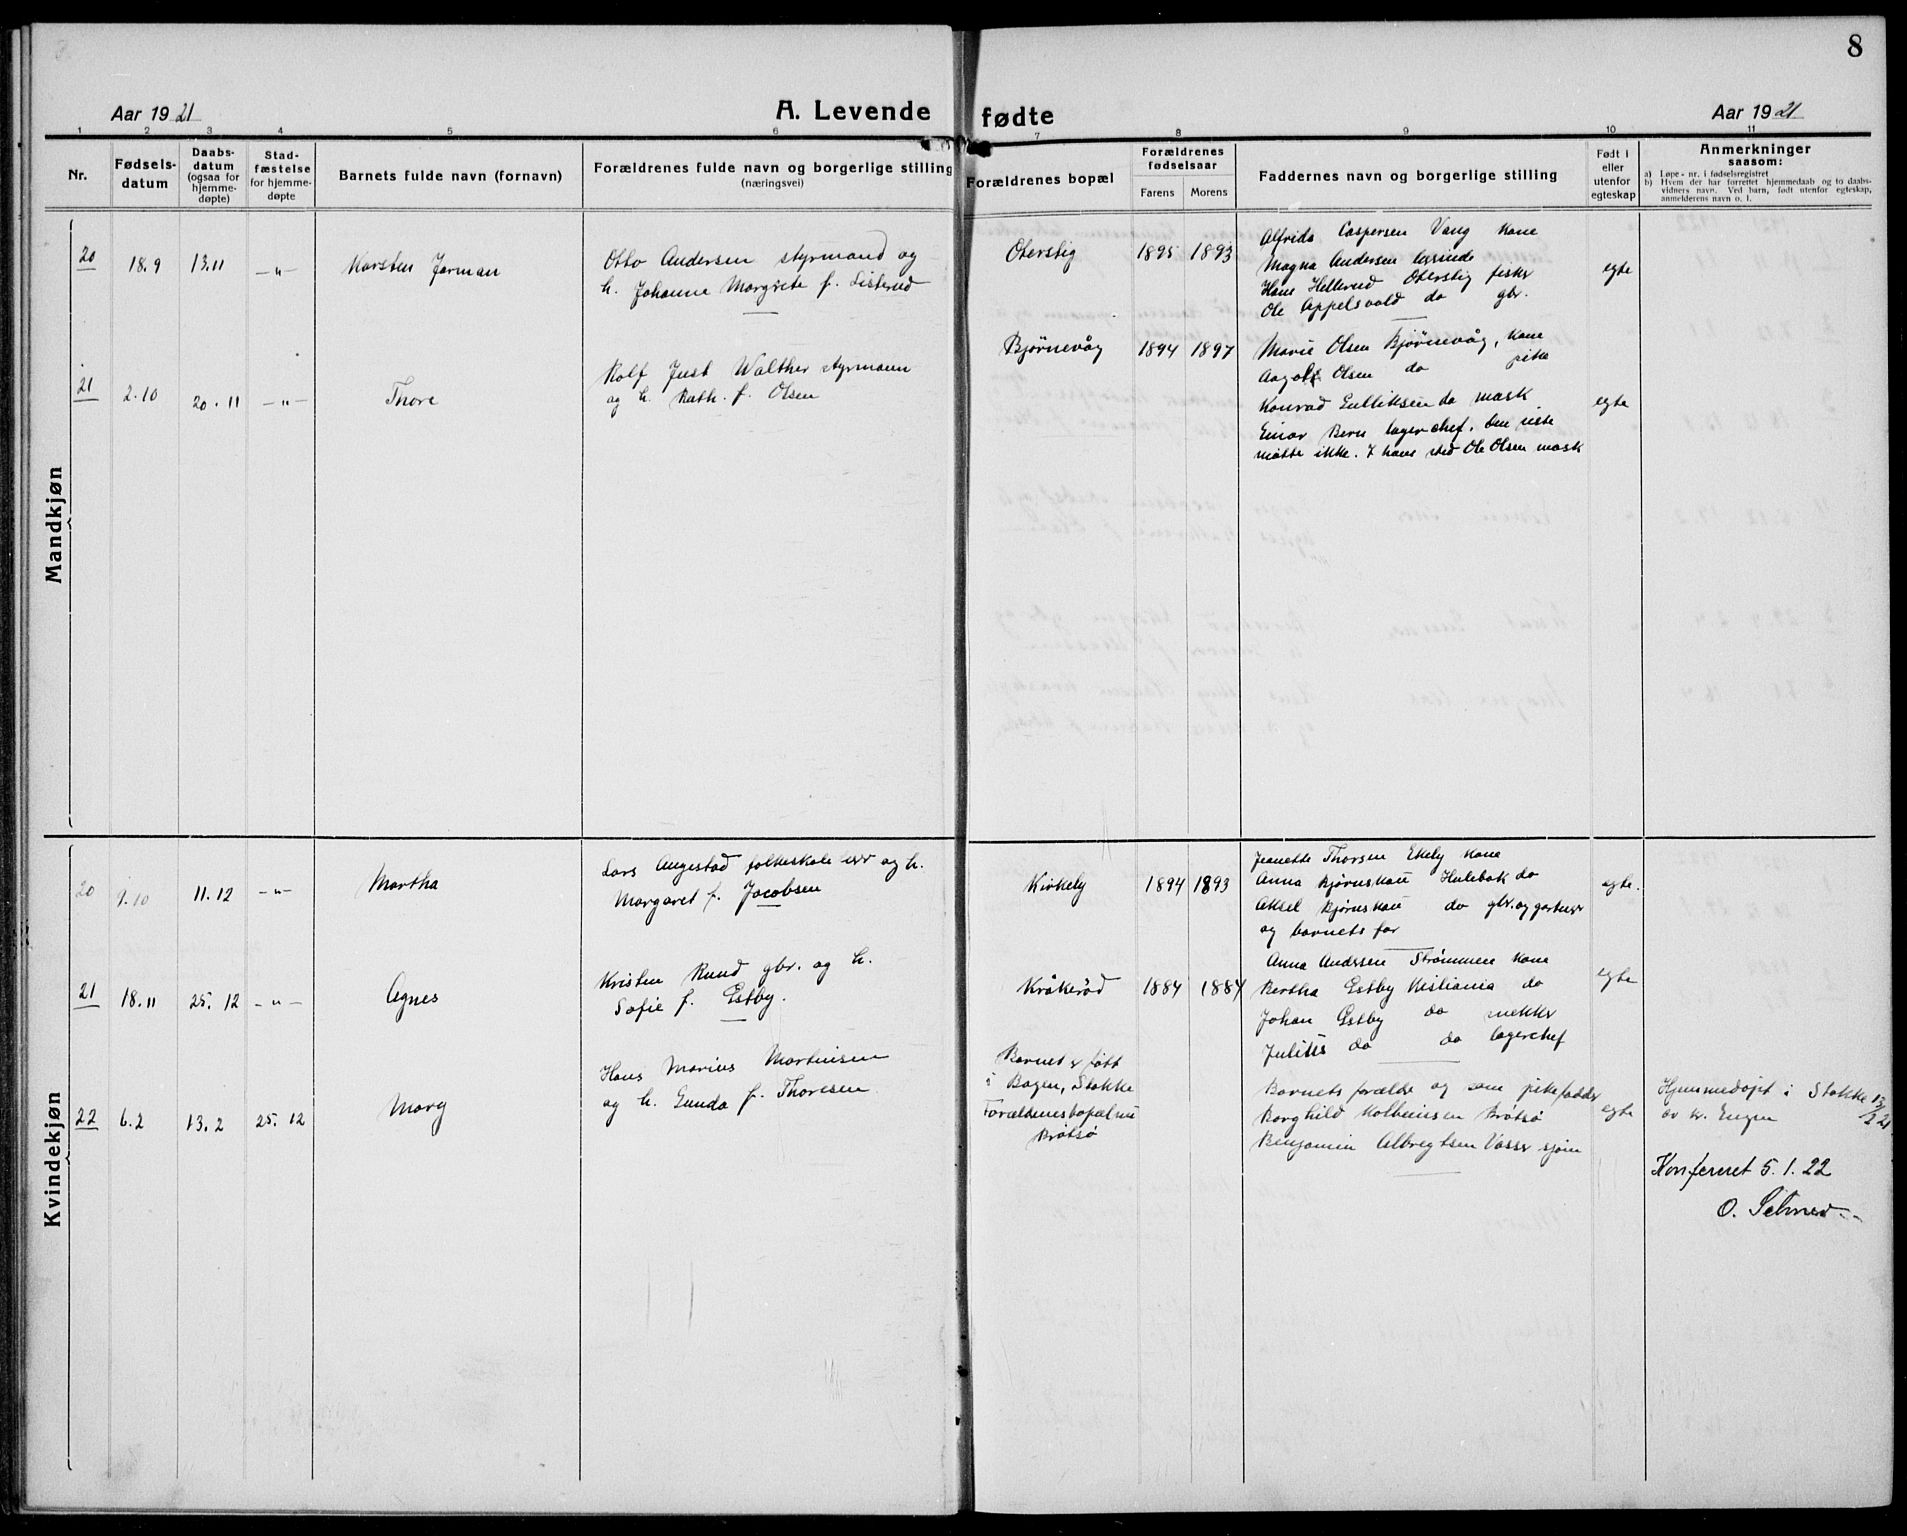 8
Aar 1921
A. Levende fødte
Aar 1921
1 2 3 4 5 6 7 8 9 10 11
Nr.
Fødsels-
datum
Daabs-
datum
(ogsaa for
hjemme-
døpte)
Stad-
fæstelse
for hjemme-
døpte
Barnets fulde navn (fornavn)
Forældrenes fulde navn og borgerlige stilling
(næringsvei)
Forældrenes bopæl
Forældrenes
fødselsaar
Farens Morens
Faddernes navn og borgerlige stilling
Født i
eller
utenfor
egteskap
Anmerkninger
saasom:
a) Løpe-nr. i fødselsregistret
b) Hvem der har forrettet hjemmedaab og to daabs-
vidners navn. Ved barn, født utenfor egteskap,
anmelderens navn o. l.
Mandkjøn
20 18.9 13.11 -"- Karsten Jarman
Otto Andersen styrmand og
h. Johanne Margrete f. Listerud
Oterstig 1895 1893
Alfrida Caspersen Vang kone
Magna Andersen
Hans Hellerud Oterstig fisker
Ole Appelsvold do gbr.
egte
21 2.10 20.11 -"- Thore
Rolf Just Walther styrmann
og h. Kath. f. Olsen
Bjørnevåg 1894 1897
Marie Olsen Bjørnevåg, kone
Aagot Olsen do pike
Konrad Gulliksen do mask
Einar Bern lagerchef. Den siste
møtte ikke. I hans sted Ole Olsen mask
egte
Kvindekjøn
20 9.10 11.12 -"- Martha
Lars Angestad folkeskolelærer og h.
Margaret f. Jacobsen
Kirkely 1894 1893
Jeanette Thorsen Ekely kone
Anna Bjørnskau Hulebak do
Aksel Bjørnskau do gbr. og gartner
og barnets far
egte.
21 18.11 25.12 -"- Agnes
Kristen Rund gbr. og h.
Sofie f. Estby.
Kråkerød 1884 1884
Anna Andersen Strømmen kone
Bertha Estby Kristiania do
Johan Estby do
Julius do do lagerchef
egte
22 6.2 13.2 25.12 Marg
Hans Marius Martinsen
og h. Gunda f. Thoresen
Barnet er født
i Bogen, Stokke
Forældrenes bopæl nu
Brøtsø
Barnets forældre og som pikefadder
Borghild Brøtsø
Benjamin Albregtsen Vasser sjøm
egte
Hjemmedøpt i Stokke 13/2 21
av kr. Engen
Konfereret 5.1.22
O.